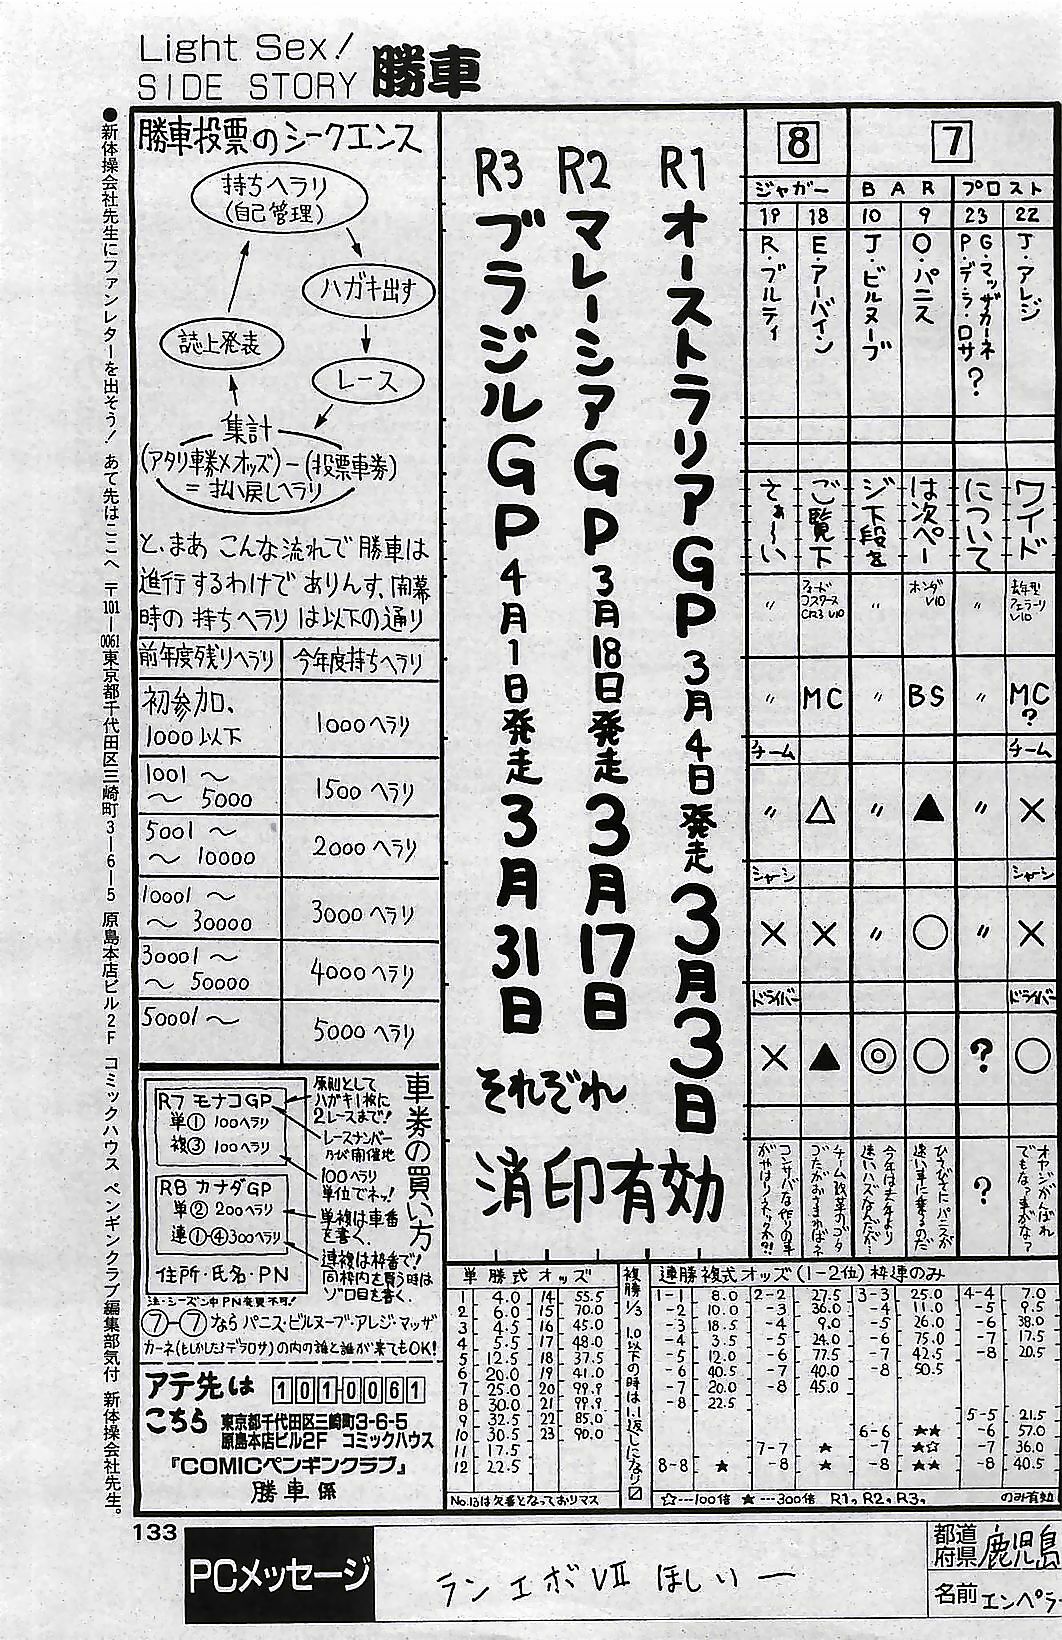 Light Sex!
SIDE STORY 勝車
●新体操会社先生にファンレターを出そう! あて先はここへ 〒101-0061東京都千代田区三崎町3-6-5 原島本店ビル2F コミックハウス ペンギンクラブ編集部気付 新体操会社先生。
8
7
ジャガー
BAR
プロスト
19
18
10
9
23
22
J・アレジ
G・マッザカーネ
P・デ・ラ・ロサ?
O・パニス
J・ビルヌーブ
E・アーバイン
R・ブルティ
ワイド
について
は次ペー
ジ下段を
ご覧下
さぁ〜い
去年型フェラーリV10
〃
ホンダV10
〃
フォードコスワースCR3 V10
〃
MC?
〃
BS
〃
MC
〃
チーム
チーム
〃 △ 〃 ▲ 〃 ×
シャーシ
シャーシ
× × 〃 ○ 〃 ×
ドライバー
ドライバー
× ▲ ◎ ○ ? ○
オヤジがんばれ
でもな?車がな?
?
ひさびさにパニスが
速い車に乗るのだ
今年は去年より
速いハズなんだが…
チーム改革のゴタ
ゴタがおさまればネ
コンサバな作りの車
がやはりネックか?!
R1 オーストラリアGP 3月4日発走 3月3日
R2 マレーシアGP 3月18日発走 3月17日
R3 ブラジルGP 4月1日発走 3月31日
それぞれ
消印有効
勝車投票のシークエンス
持ちヘラリ
(自己管理)
ハガキ出す
誌上発表
レース
集計
(アタリ車券×オッズ)-(投票車券)
=払い戻しヘラリ
と、まあ こんな流れで 勝車は
進行するわけで ありんす、開幕
時の 持ちヘラリ は以下の通り
前年度残りヘラリ 今年度持ちヘラリ
初参加、
1000 以下
1000 ヘラリ
1001 〜
〜 5000
1500 ヘラリ
5001 〜
〜 10000
2000 ヘラリ
10001 〜
〜 30000
3000 ヘラリ
30001 〜
〜 50000
4000 ヘラリ
50001 〜
5000 ヘラリ
車券の買い方
R7 モナコGP
単① 100ヘラリ
複③ 100ヘラリ
R8 カナダGP
単② 200ヘラリ
連①-④300ヘラリ
住所・氏名・PN
原則として
ハガキ1枚に
2レースまで!
レースナンバー
及び開催地
100ヘラリ
単位でネッ!
単複は車番
を書く、
連複は枠番で!
同枠内を買う時は
ゾロ目を書く、
注:シーズン中PN変更不可!
⑦-⑦なら パニス・ビルヌーブ・アレジ・マッザ
カーネ(もしかしたらデラロサ)の内の誰と誰が来てもOK!
アテ先は 1010061
こちら 東京都千代田区三崎町3-6-5
原島本店ビル2F コミックハウス
『COMICペンギンクラブ』
勝車係
単勝式オッズ
1 4.0 14 55.5
2 6.0 15 70.0
3 4.5 16 45.0
4 5.5 17 48.0
5 12.5 18 37.5
6 20.0 19 41.0
7 25.0 20 99.9
8 30.0 21 99.9
9 32.5 22 85.0
10 30.5 23 90.0
11 17.5
12 22.5
No.13は欠番となっておりマス
複勝1/3 1.0以下の時は1.1返しになり〼
連勝複式オッズ(1-2位)枠連のみ
1-1 8.0 2-2 27.5 3-3 25.0 4-4 7.0
-2 10.0 -3 36.0 -4 11.0 -5 9.5
-3 18.5 -4 9.0 -5 26.0 -6 38.0
-4 3.5 -5 24.0 -6 75.0 -7 17.5
-5 12.0 -6 77.5 -7 42.5 -8 20.5
-6 40.5 -7 40.0 -8 50.5
-7 20.0 -8 45.0
-8 22.5
5-5 21.5
6-6 ★★ -6 57.0
7-7 ★ -7 ★☆ -7 36.0
8-8 ★ -8 ★ -8 ★★ -8 40.5
☆---100倍 ★---300倍 R1, R2, R3, のみ有効
133
PCメッセージ
ランエボVII ほしいー
都道府県 鹿児島
名前 エンペラー